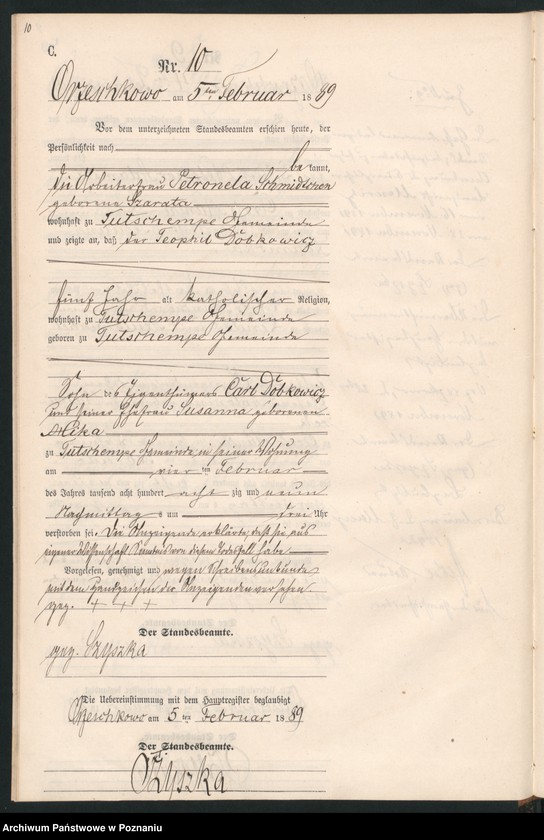 10
C.
Nr. 10
Orzeschkowo am 5ten Februar 1889
Vor dem unterzeichneten Standesbeamten erschien heute, der
Persönlichkeit nach
bekannt,
die Arbeiterfrau Petronela Schmidtchen
geborene Szarata
wohnhaft zu Tutschempe Gemeinde
und zeigte an, daß der Teophil Dobkowicz
fünf Jahr alt katholischer Religion,
wohnhaft zu Tutschempe Gemeinde
geboren zu Tutschempe Gemeinde
Sohn des Eigenthümers Carl Dobkowicz
und seiner Ehefrau Susanna geborenen
Mika
zu Tutschempe Gemeinde in seiner Wohnung
am vier ten Februar
des Jahres tausend acht hundert acht zig und neun
Nachmittag s um drei Uhr
verstorben sei. Die Anzeigende erklärte, daß sie aus
eigener Wissenschaft Kenntniß von diesem Todesfall habe
Vorgelesen, genehmigt und wegen Schreibensunkunde
mit dem Handzeichen der Anzeigenden versehen.
gez. + + +
Der Standesbeamte.
gez. Szyszka
Die Uebereinstimmung mit dem Hauptregister beglaubigt
Orzeschkowo am 5 ten Februar 1889
Der Standesbeamte.
Szyszka
Archiwum Państwowe w Poznaniu